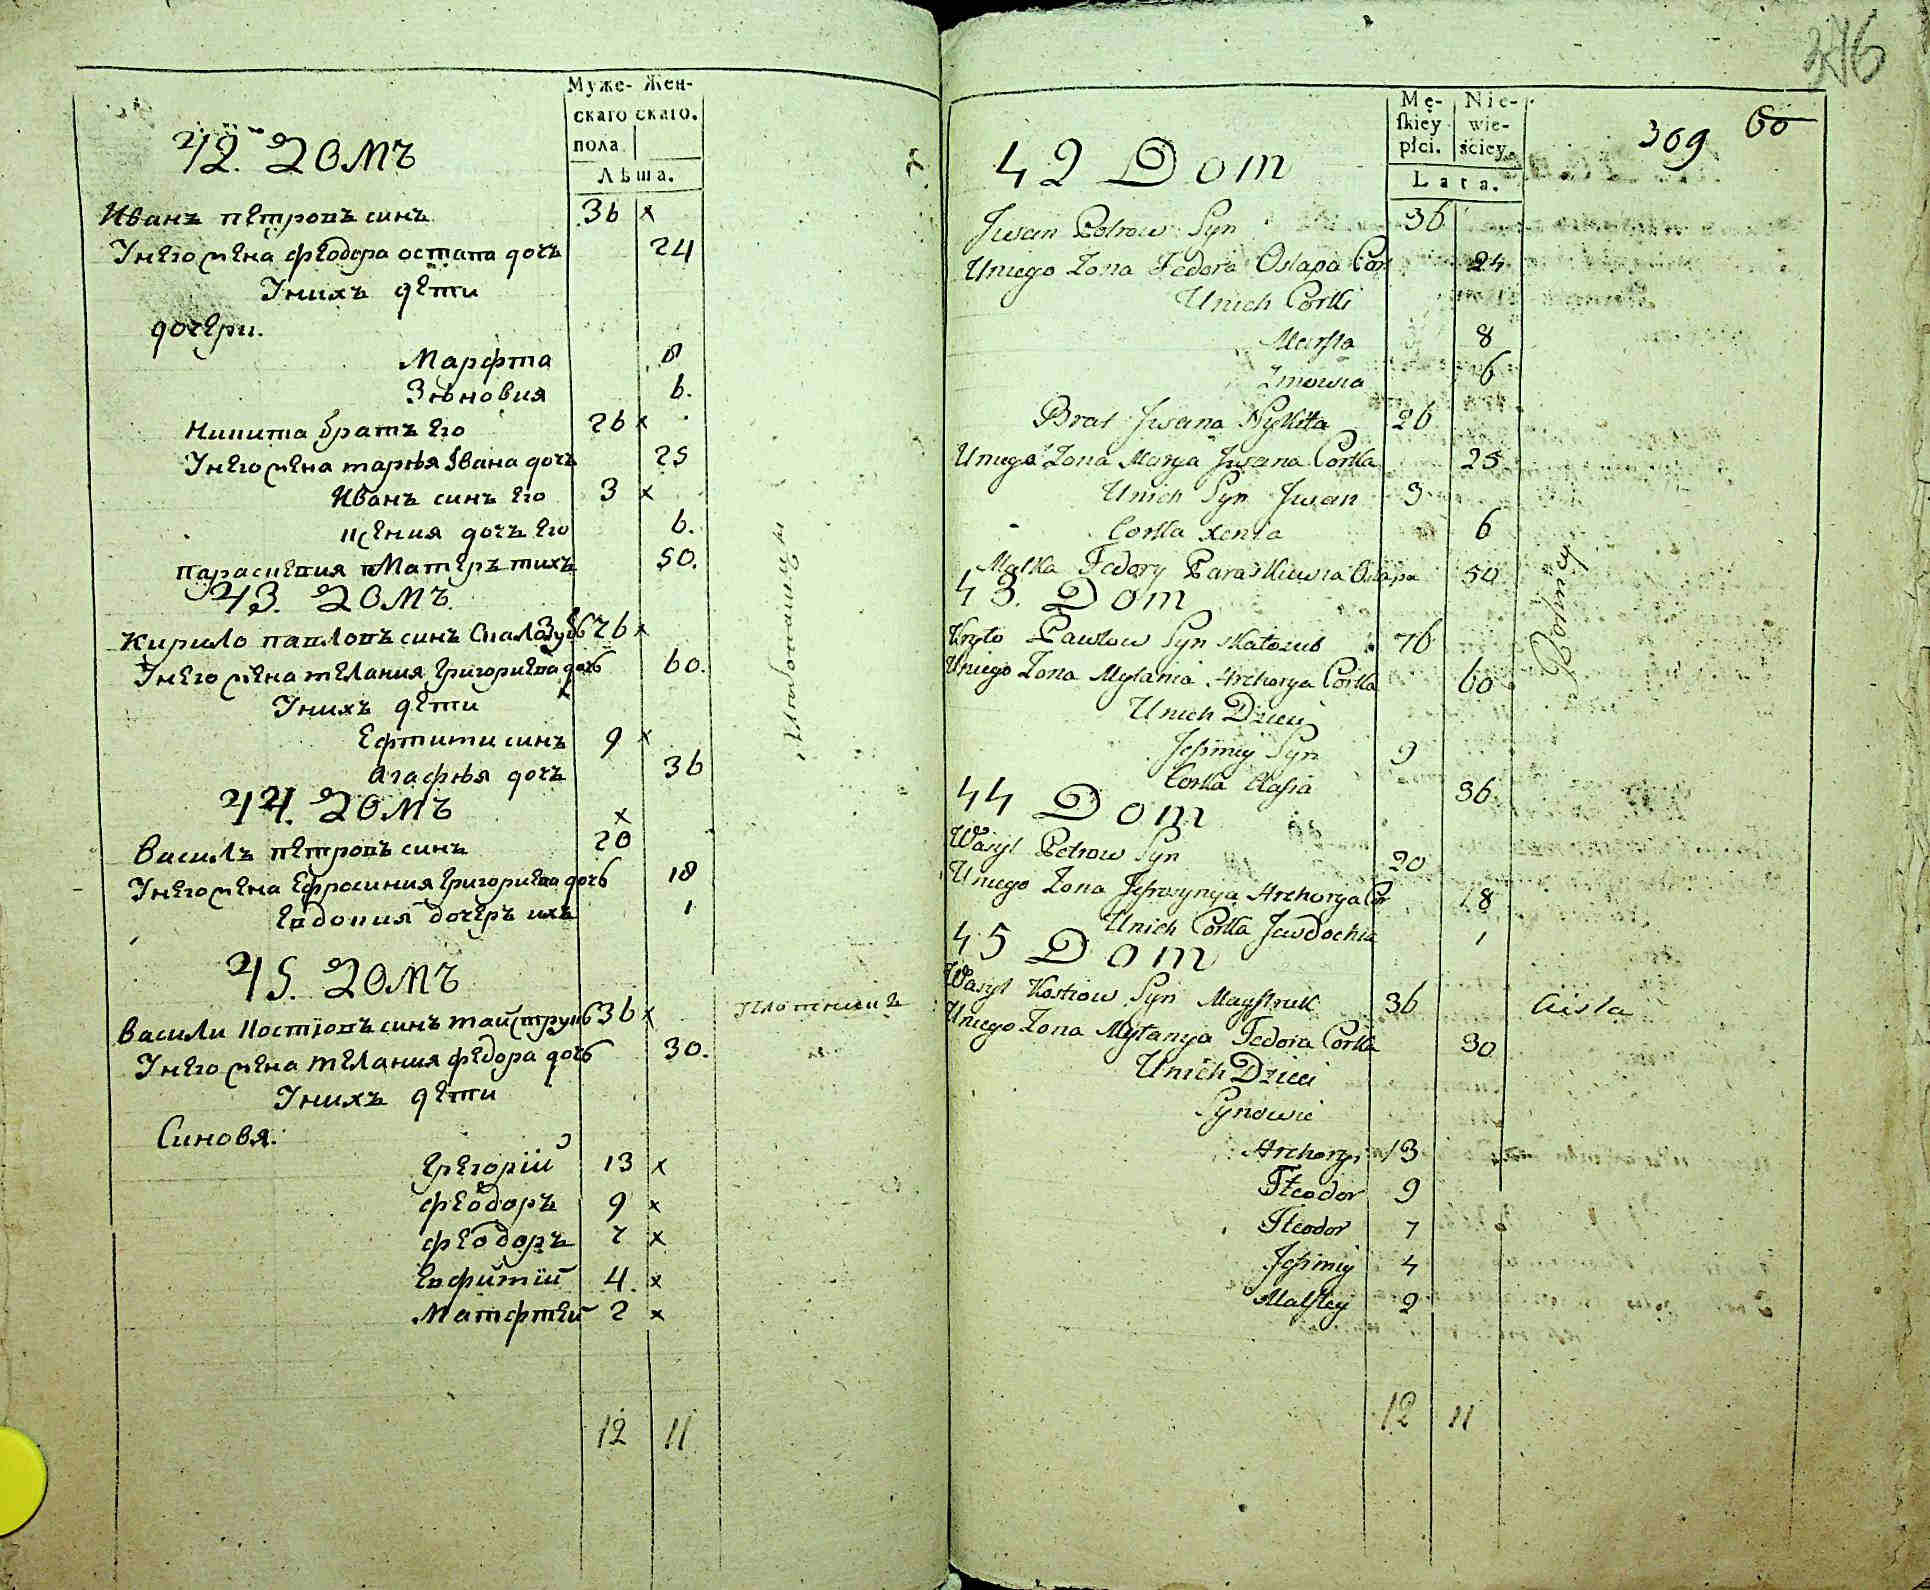 Муже- Жен-
скаго скаго.
пола
Лѣша.
42. Домъ
Иванъ петровъ синъ 36 x
Унего жена феодора остапа дочъ 24
Унихъ дети
дочери.
Марфта 8
Зѣновия 6.
Никита братъ Его 26 x
Унего жена марья Ивана дочъ 25
Иванъ синъ Его 3 x
ксения дочъ Его 6.
параскевия Матеръ тихъ 50.
43. Домъ.
Кирило павловъ синъ Скалозубъ 76 x
Унего жена мелания Григориева дочъ 60.
Унихъ дети
Ефтими синъ 9 x
Агафья дочъ 36
44. Домъ x
Василъ петровъ синъ 20
Унего жена Ефросиния Григориева дочъ 18
Евдокия дочеръ ихъ 1
45. Домъ
Васили Костювъ синъ майструкъ 36 x
Унего жена мелания федора дочъ 30.
Унихъ дети
Синовя:
Григорій 13 x
феодоръ 9 x
феодоръ 7 x
Евфимій 4 x
Матфтей 2 x
12 11
плотникъ
346
Mę- Nie-
ſkiey wie-
płci. ściey.
Lata.
309 60
42 Dom
Jwan Petrow Syn 36
Uniego Zona Fedora Ostapa Cor 24
Unich Corki
Marfta 8
Zinowia 6
Brat Jwana Nykitta 26
Uniego Zona Marya Jwana Corka 25
Unich Syn Jwan 3
Corka xenia 6
Matka Fedory Paraskiewia Ostapa 50
43. Dom
Kryło Pawłow Syn Skałozub 76
Uniego Zona Myłania Hrehorya Corka 60
Unich Dzieci
Jefimiy Syn 9
Corka Hafia 36
44 Dom
Wasyl Petrow Syn 20
Uniego Zona Jefrozynya Hrehorya Cor 18
Unich Corka Jewdochia 1
45 Dom
Wasyl Kostiow Syn Maystruk 36
Uniego Zona Myłanya Fedora Corka 30
Unich Dzieci
Synowie
Hrehory 13
Fteodor 9
Fteodor 7
Jefimiy 4
Matftey 2
12 11
Rolnicy
Cieśla